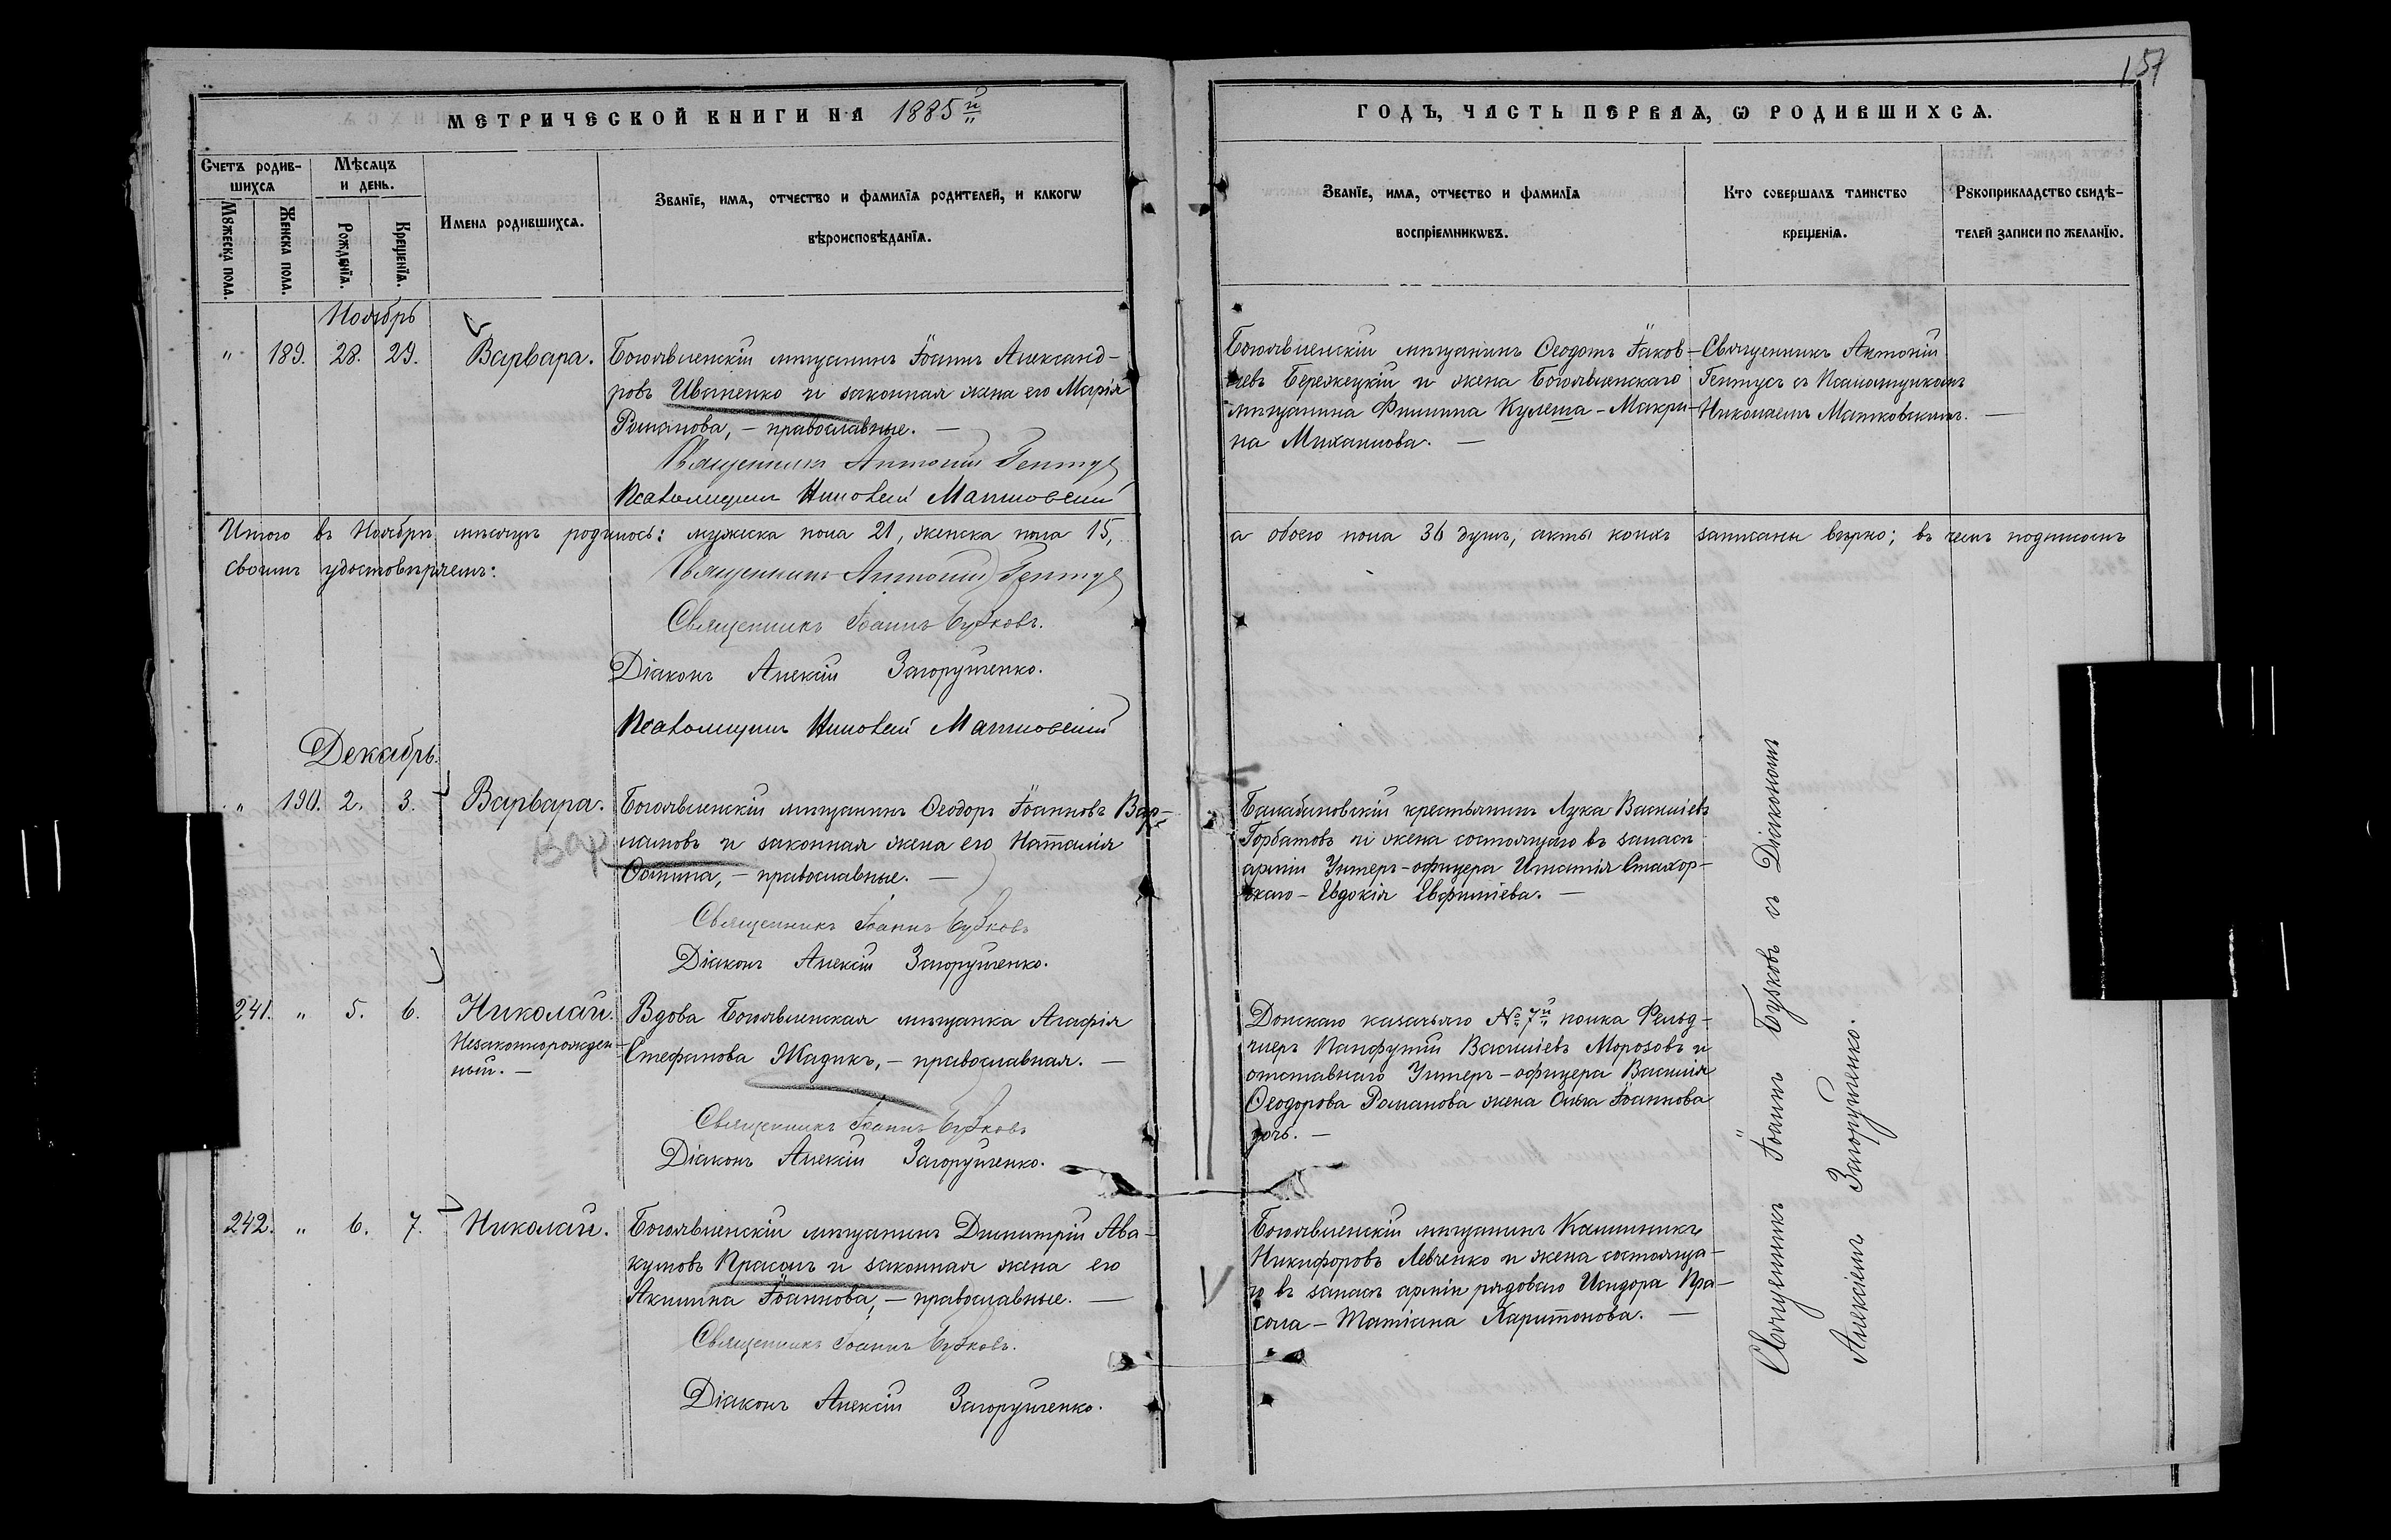 157
МЕТРИЧЕСКОЙ КНИГИ НА 1885й
ГОДЪ, ЧАСТЬ ПЕРВАѦ, Ѡ РОДИВШИХСѦ.
Счетъ родив-
шихсѧ
Мꙋжеска пола.
Женска пола.
Мѣсѧцъ
и день.
Рожденїѧ.
Крещенїѧ.
Имена родившихсѧ.
Званїе, имѧ, отчество и фамилїѧ родителей, и какогѡ
вѣроисповѣданїѧ.
Званїе, имѧ, отчество и фамилїѧ
воспрїемникѡвъ.
Кто совершалъ таинство
крещенїѧ.
Рꙋкоприкладство свидѣ-
телей записи по желанїю.
Ноябрь
" 189. 28. 29. Варвара.
Богоявленскій мѣщанинъ Іоаннъ Александ-
ровъ Иваненко и законная жена его Марія
Романова, – православные. –
Священникъ Антоній Гептус
Псаломщикъ Николай Матковскій
Богоявленскій мѣщанинъ Ѳеодотъ Іаков-
левъ Бережецкій и жена Богоявленскаго
мѣщанина Филиппа Кулеша – Макри-
на Михаилова. –
Священникъ Антоній
Гептусъ съ Псаломщикомъ
Николаемъ Матковскимъ. –
Итого въ Ноябрѣ мѣсяцѣ родилось: мужеска пола 21, женска пола 15,
а обоего пола 36 душъ, акты коихъ записаны вѣрно; въ чемъ подписомъ
своимъ удостовѣряемъ:
Священникъ Антоній Гептус
Священникъ Іоаннъ Бузковъ.
Діаконъ Алексій Загорушенко.
Псаломщикъ Николай Матковскій
Декабрь.
" 190. 2. 3. Варвара.
Вар
Богоявленскій мѣщанинъ Ѳеодоръ Іоанновъ Вар-
ламовъ и законная жена его Наталія
Ѳомина, – православные. –
Священникъ Іоаннъ Бузковъ
Діаконъ Алексій Загорушенко.
Балабановскій крестьянинъ Лука Васильевъ
Горбатовъ и жена состоящаго въ запасѣ
арміи Унтеръ-офицера Игнатія Стахор-
скаго – Евдокія Евфиміева. –
241. " 5. 6. Николай.
Незаконнорожден-
ный. –
Вдова Богоявленская мѣщанка Агафія
Стефанова Жадикъ, – православная. –
Священникъ Іоаннъ Бузковъ
Діаконъ Алексій Загорушенко.
Донскаго казачьяго № 7й полка Фельд-
шеръ Панфутій Васильевъ Морозовъ и
отставнаго Унтеръ-офицера Василія
Ѳеодорова Романова жена Ольга Іоаннова
дочь. –
242. " 6. 7. Николай.
Богоявленскій мѣщанинъ Димитрій Ава-
кумовъ Прасолъ и законная жена его
Акилина Іоаннова, – православные. –
Священникъ Іоаннъ Бузковъ.
Діаконъ Алексій Загорушенко.
Богоявленскій мѣщанинъ Каллиникъ
Никифоровъ Левченко и жена состояща-
го въ запасѣ арміи рядоваго Исидора Пра-
сола – Татіана Харитонова. –
Священникъ Іоаннъ Бузковъ съ Діакономъ
Алексіемъ Загорушенко.